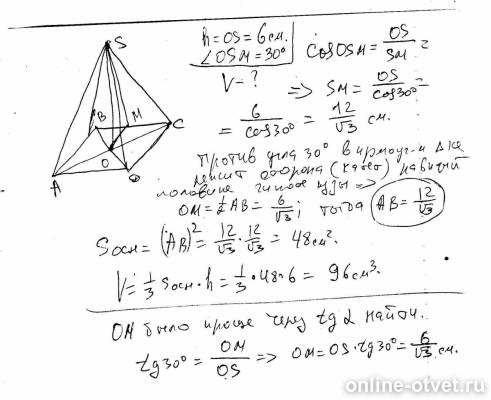 S
B
M
C
O
A
D
h = OS = 6см.
∠OSM = 30°
V = ?
cos OSM = OS/SM =
=> SM = OS/cos30° =
= 6/cos30° = 12/√3 см.
Против угла 30° в прямоуг-м Δ-ке
лежит сторона (катет) равный
половине гипотенузы =>
OM = ½ AB = 6/√3; тогда AB = 12/√3
Sосн = (AB)² = 12/√3 · 12/√3 = 48см².
V = 1/3 Sосн · h = 1/3 · 48·6 = 96см³.
OM было проще через tg α найти.
tg 30° = OM/OS => OM = OS · tg 30° = 6/√3 см.
online-otvet.ru